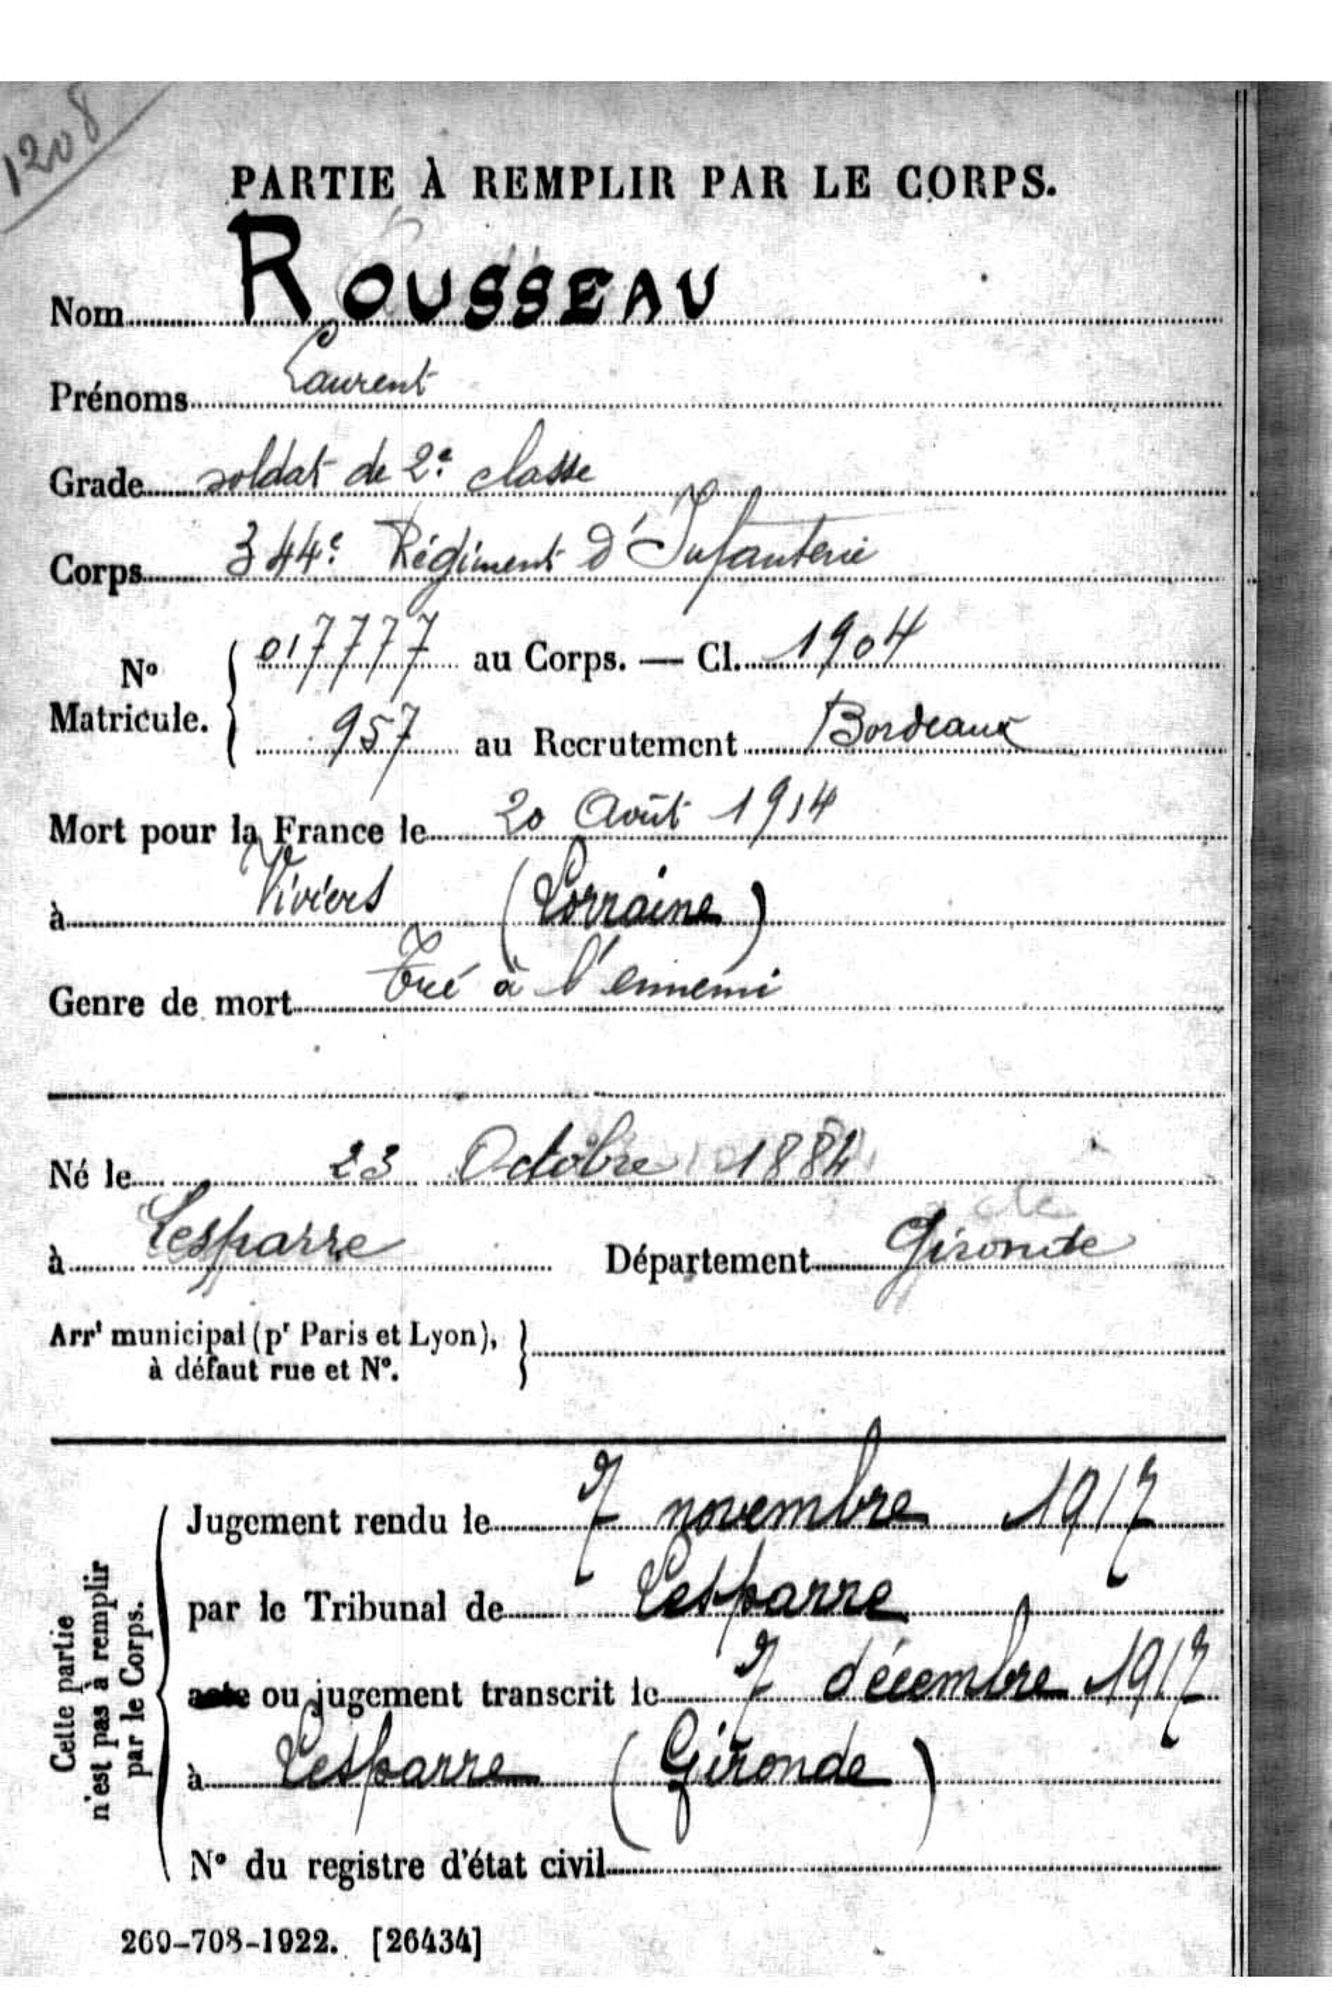 1208
PARTIE À REMPLIR PAR LE CORPS.
Nom ROUSSEAU
Prénoms Laurent
Grade soldat de 2e classe
Corps 344e Régiment d'Infanterie
No Matricule. { 017777 au Corps. — Cl. 1904
957 au Recrutement Bordeaux
Mort pour la France le 20 Août 1914
à Viviers (Lorraine)
Genre de mort Tué à l'ennemi
Né le 23 Octobre 1884
à Lesparre Département Gironde
Arrt municipal (pr Paris et Lyon), }
à défaut rue et No.
Cette partie
n'est pas à remplir
par le Corps.
Jugement rendu le 7 novembre 1917
par le Tribunal de Lesparre
acte ou jugement transcrit le 7 décembre 1917
à Lesparre (Gironde)
No du registre d'état civil
269-708-1922. [26434]